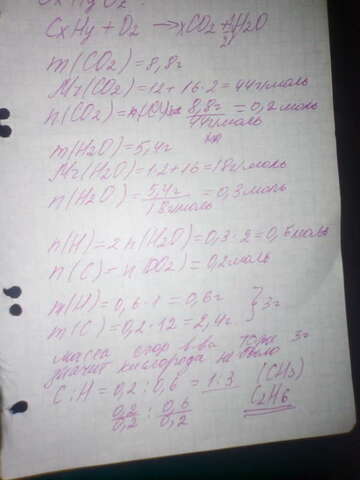 CxHy + O2 → xCO2 + y/2 H2O
m(CO2) = 8,8г
Mr(CO2) = 12 + 16·2 = 44г/моль
n(CO2) = n(C) = 8,8г / 44г/моль = 0,2моль
m(H2O) = 5,4г
Mr(H2O) = 1·2 + 16 = 18г/моль
n(H2O) = 5,4г / 18г/моль = 0,3моль
n(H) = 2 n(H2O) = 0,3·2 = 0,6моль
n(C) = n(CO2) = 0,2моль
m(H) = 0,6·1 = 0,6г
m(C) = 0,2·12 = 2,4г } 3г
масса сгор в-ва тоже 3г
значит кислорода не было
C : H = 0,2 : 0,6 = 1:3 (CH3)
0,2/0,2 : 0,6/0,2 C2H6